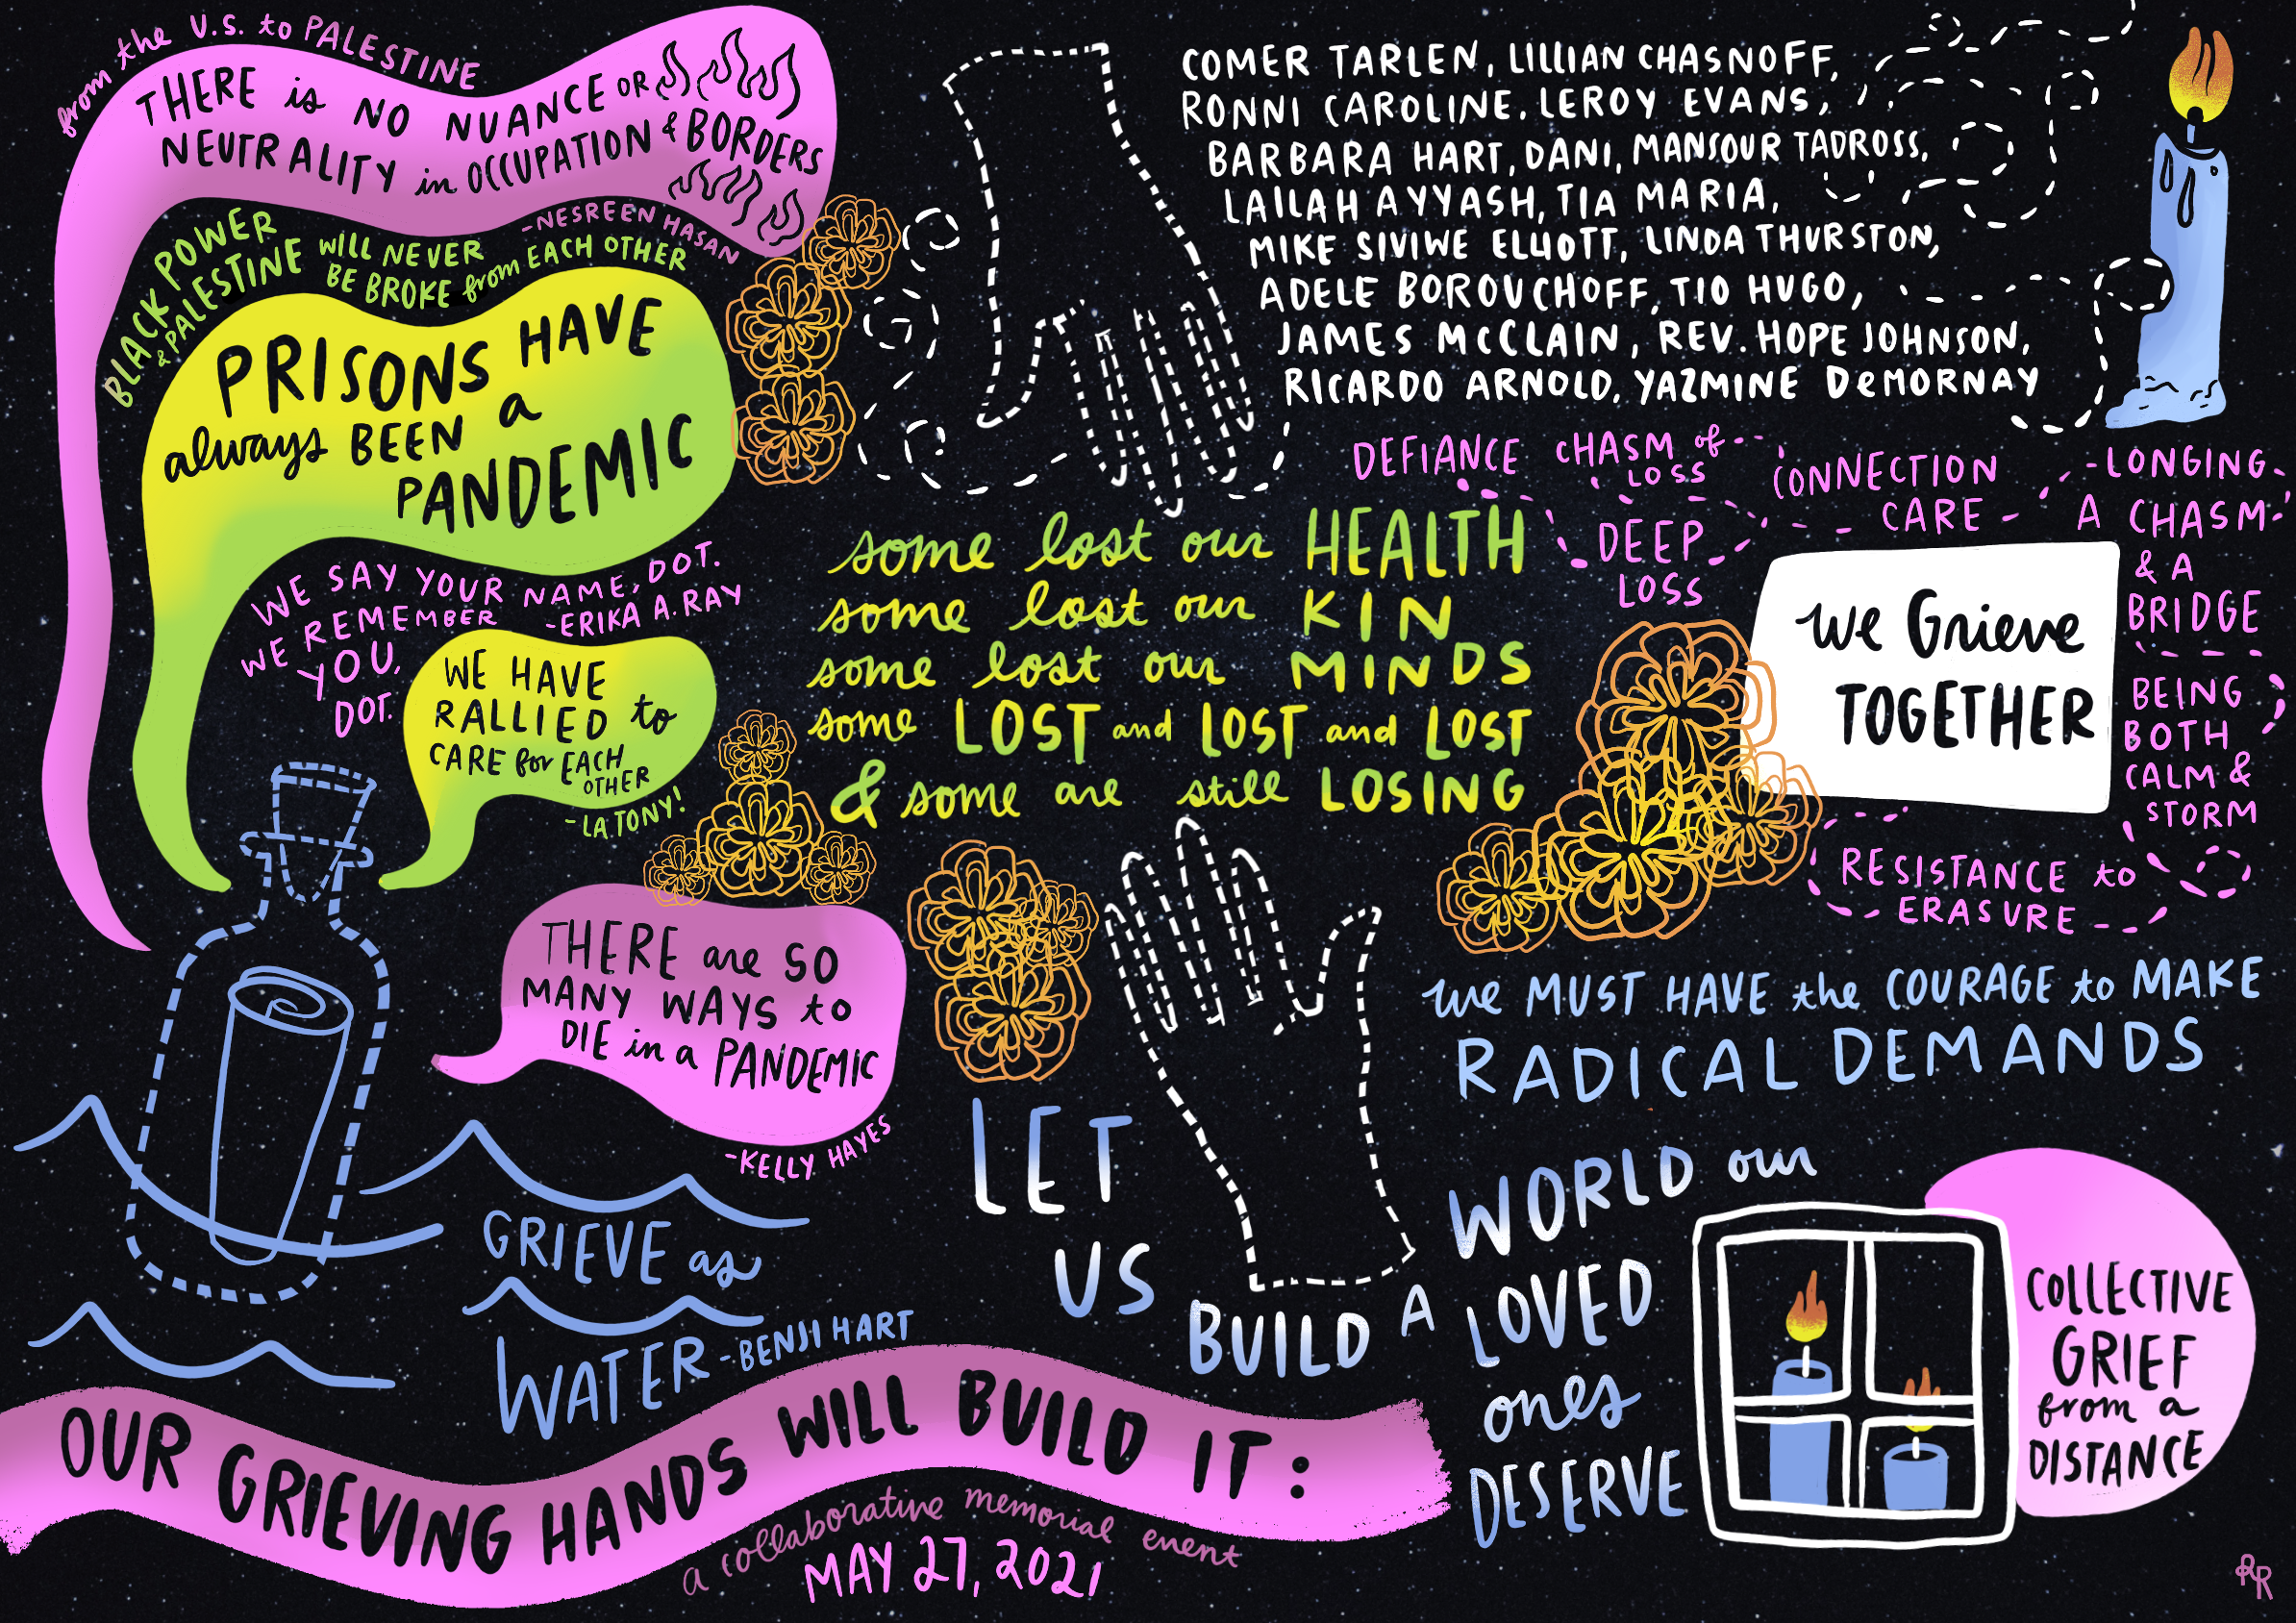 from the U.S. to PALESTINE
THERE is NO NUANCE OR
NEUTRALITY in OCCUPATION & BORDERS
-NESREEN HASAN
BLACK POWER
& PALESTINE WILL NEVER
BE BROKE from EACH OTHER
PRISONS HAVE
always BEEN a
PANDEMIC
WE SAY YOUR NAME, DOT.
WE REMEMBER
YOU,
DOT.
-ERIKA A. RAY
WE HAVE
RALLIED to
CARE for EACH
OTHER
-LA TONY!
THERE are SO
MANY WAYS to
DIE in a PANDEMIC
-KELLY HAYES
GRIEVE as
WATER -BENJI HART
COMER TARLEN, LILLIAN CHASNOFF,
RONNI CAROLINE, LEROY EVANS,
BARBARA HART, DANI, MANSOUR TADROSS,
LAILAH AYYASH, TIA MARIA,
MIKE SIVIWE ELLIOTT, LINDA THURSTON,
ADELE BOROUCHOFF, TIO HUGO,
JAMES McCLAIN, REV. HOPE JOHNSON,
RICARDO ARNOLD, YAZMINE DeMORNAY
some lost our HEALTH
some lost our KIN
some lost our MINDS
some LOST and LOST and LOST
& some are still LOSING
DEFIANCE
CHASM of
LOSS
DEEP
LOSS
CONNECTION
CARE
-LONGING-
A CHASM
& A
BRIDGE
BEING
BOTH
CALM &
STORM
RESISTANCE to
ERASURE
we Grieve
TOGETHER
we MUST HAVE the COURAGE to MAKE
RADICAL DEMANDS
LET
US
BUILD A
WORLD our
LOVED
ones
DESERVE
COLLECTIVE
GRIEF
from a
DISTANCE
OUR GRIEVING HANDS WILL BUILD IT:
a collaborative memorial event
MAY 27, 2021
RR